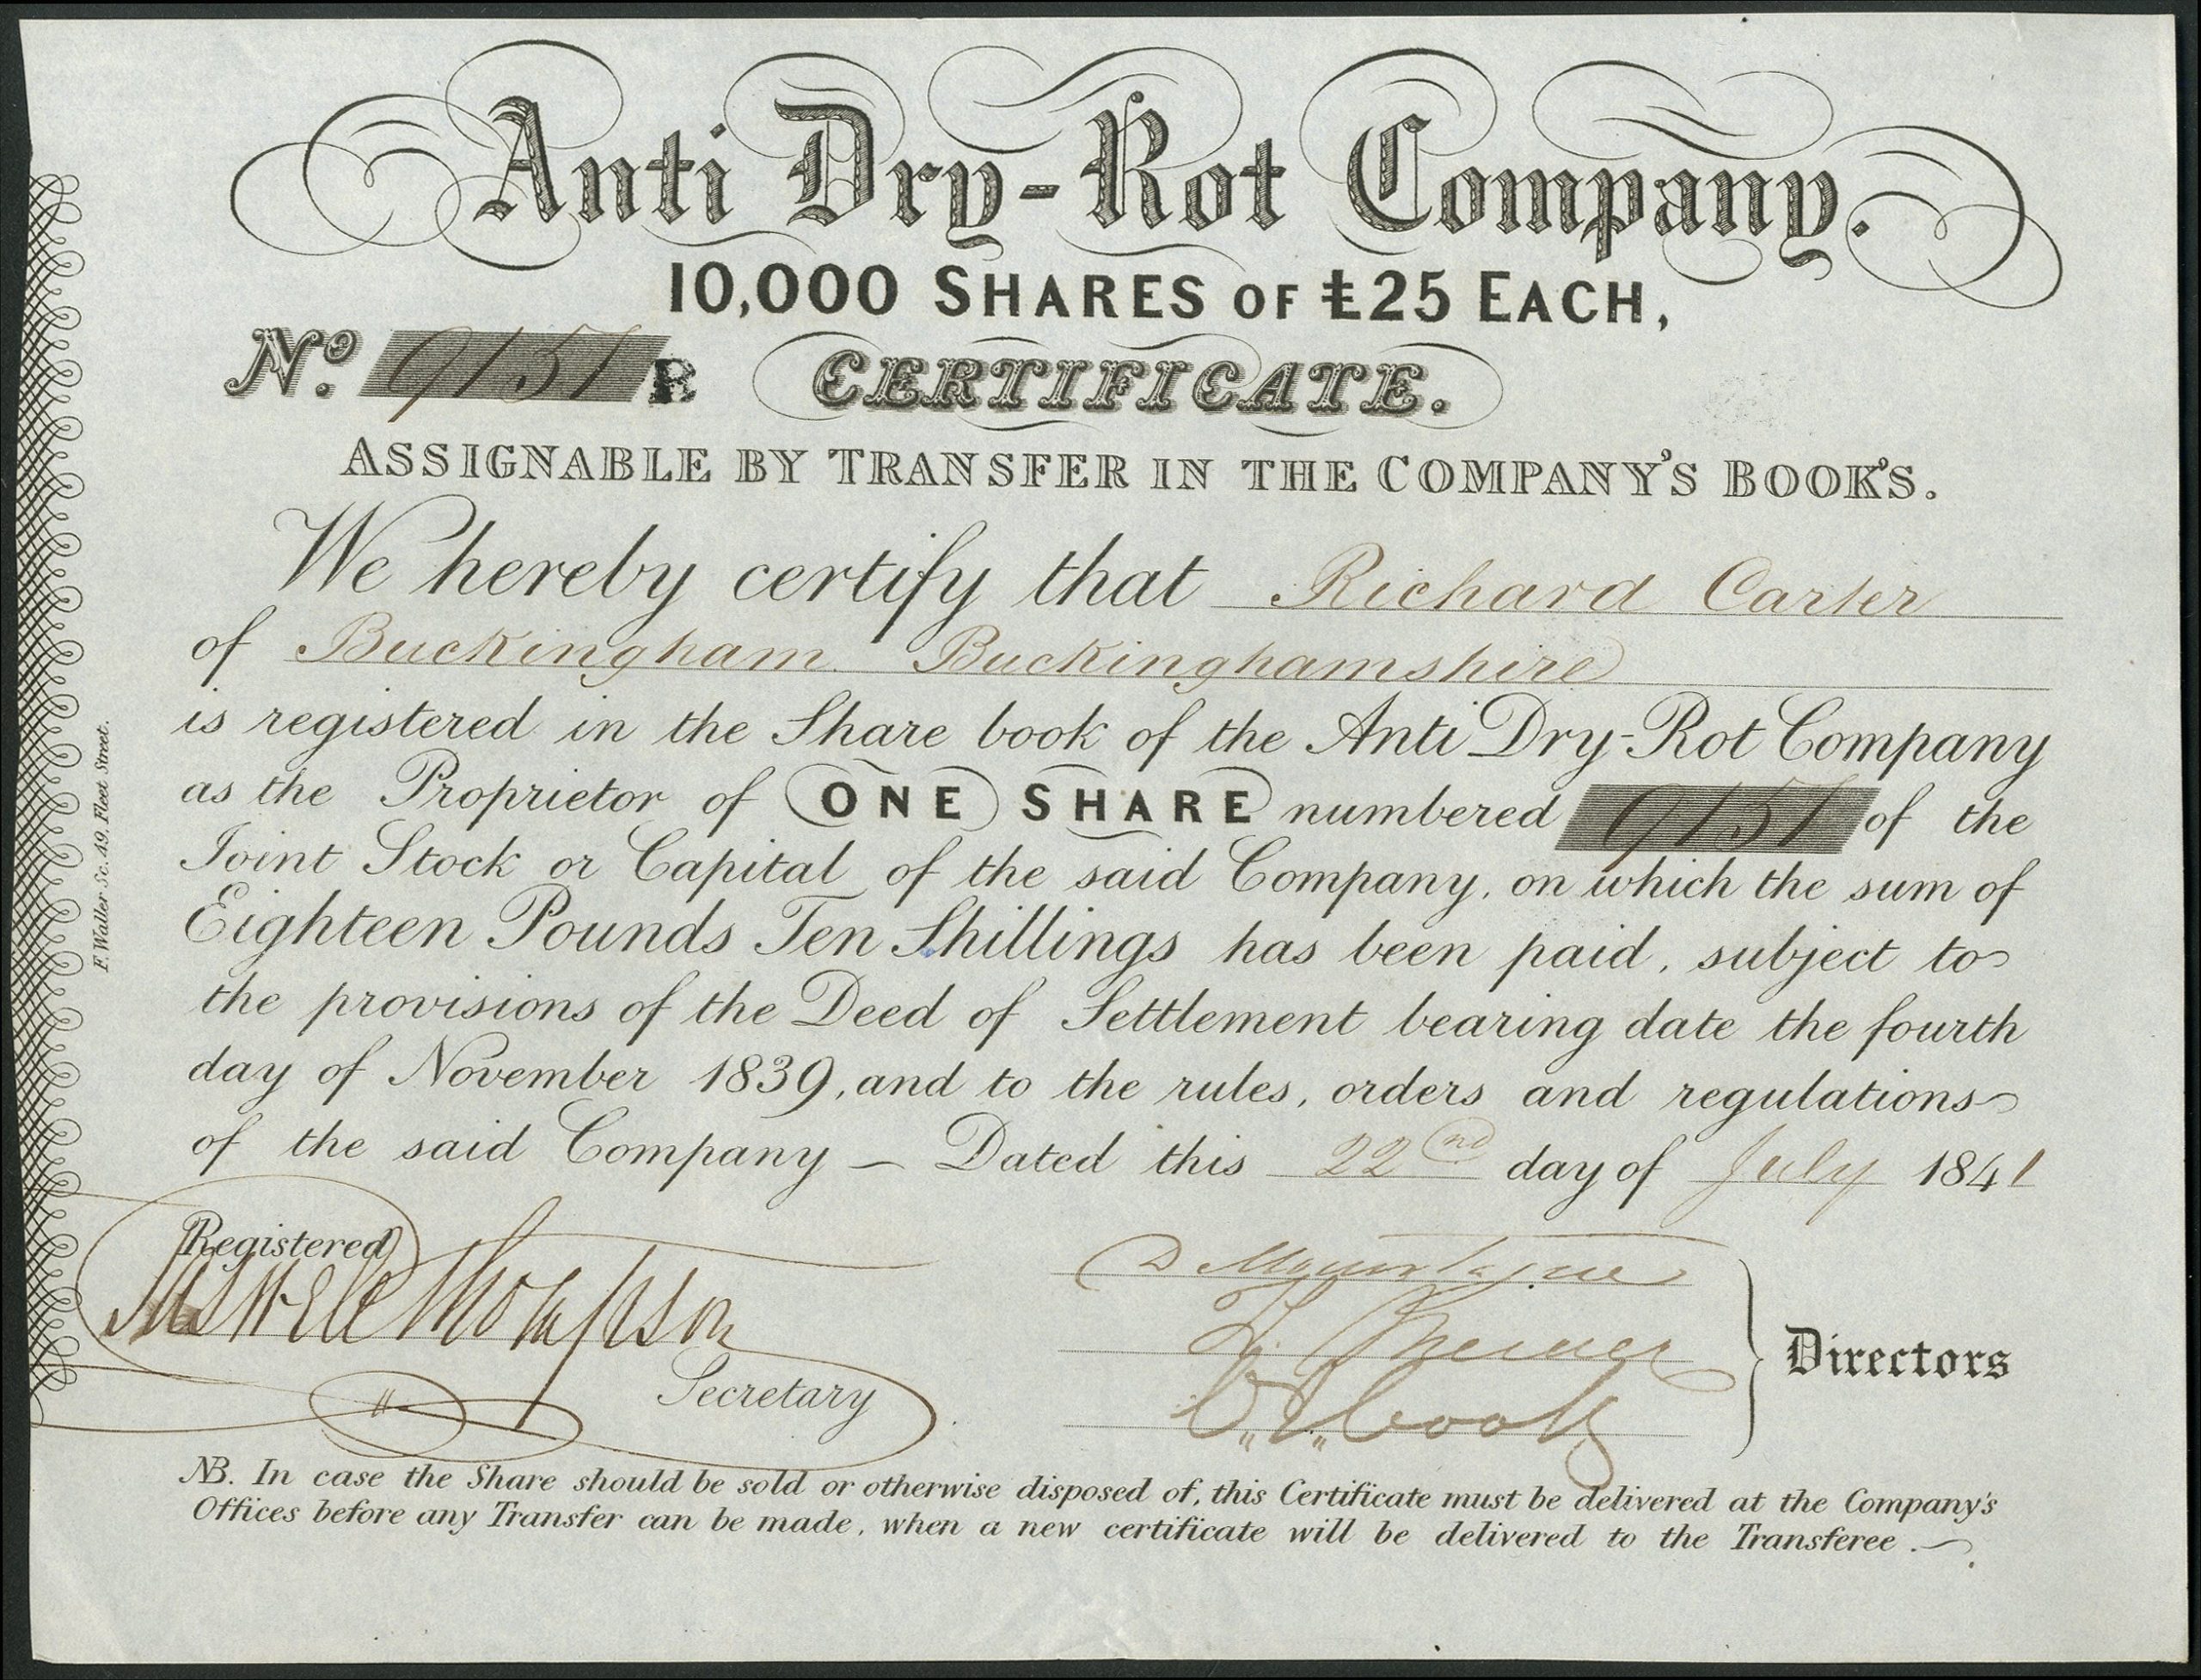 Anti Dry-Rot Company.
10,000 SHARES OF £25 EACH,
No. 9151 R CERTIFICATE.
ASSIGNABLE BY TRANSFER IN THE COMPANY'S BOOK'S.
We hereby certify that Richard Carter
of Buckingham Buckinghamshire
is registered in the Share book of the Anti Dry-Rot Company
as the Proprietor of ONE SHARE numbered 9151 of the
Joint Stock or Capital of the said Company, on which the sum of
Eighteen Pounds Ten Shillings has been paid, subject to
the provisions of the Deed of Settlement bearing date the fourth
day of November 1839, and to the rules, orders and regulations
of the said Company — Dated this 22nd day of July 1841
Registered
Thompson
Secretary
D Mountague
Cook
Directors
NB. In case the Share should be sold or otherwise disposed of, this Certificate must be delivered at the Company's
Offices before any Transfer can be made, when a new certificate will be delivered to the Transferee.
F. Waller Sc. 49, Fleet Street.